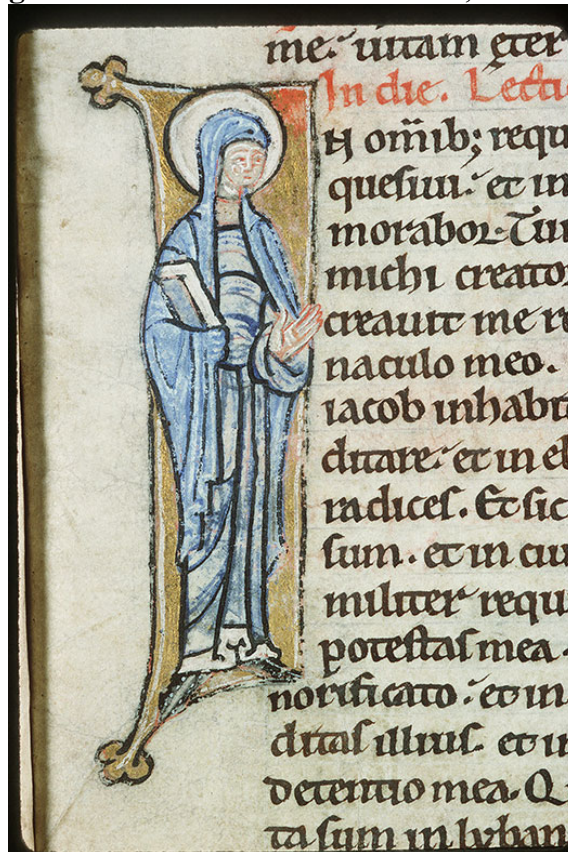 me. uitam ęter
In die. Lecti
N om̄ib; requ
quesiui. et in
morabor. Tun
michi creato
creauit me re
naculo meo.
iacob inhabit
ditare. et in el
radices. Et sic
sum. et in ciu
militer requi
potestas mea.
norificato. et in
ditas illius. et in
detentio mea. Q
ta sum in lyban